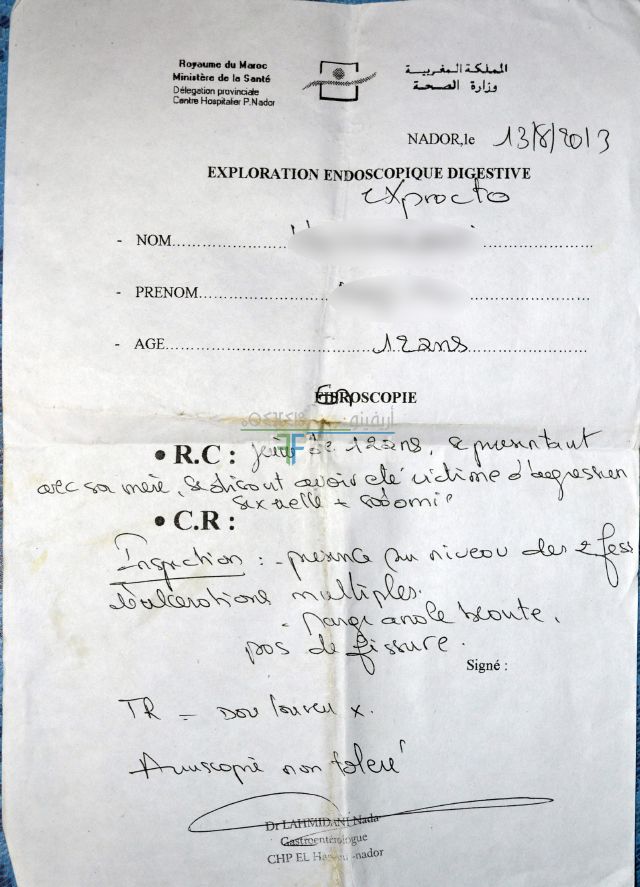 Royaume du Maroc
Ministère de la Santé
Délégation provinciale
Centre Hospitalier P.Nador
المملكة المغربية
وزارة الصحة
NADOR,le 13/8/2013
EXPLORATION ENDOSCOPIQUE DIGESTIVE
exprocto
- NOM
- PRENOM
- AGE 12 ans
FIBROSCOPIE
أريفينو
• R.C : jeune de 12 ans, se présentant
avec sa mère, se disant avoir été victime d'agression
sexuelle + sodomie
• C.R :
Inspection : - présence au niveau des 2 fess
d'ulcérations multiples.
- marge anale
pas de fissure.
Signé :
TR = douloureux.
Anuscopie non toléré
Dr LAHMIDANI Nada
Gastroentérologue
CHP EL -nador